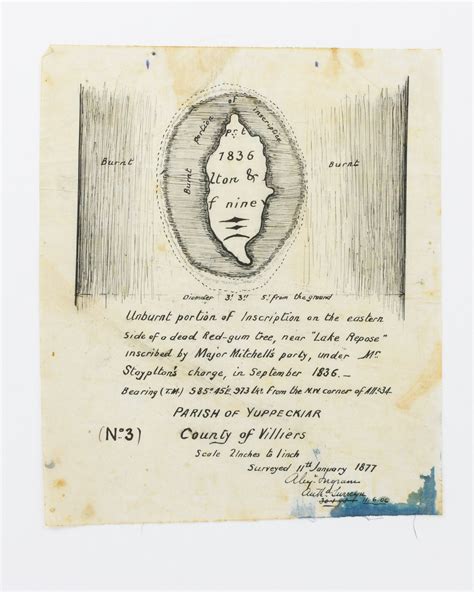 Burnt portion of Inscription
Burnt
Burnt
Pst
1836
lton &
f nine
Diameter 3'. 3" 5' from the ground
Unburnt portion of Inscription on the eastern
side of a dead Red-gum tree, near "Lake Repose"
inscribed by Major Mitchell's party, under Mr
Stapylton's charge, in September 1836.—
Bearing (T.M.) S 85° 45' E. 973 lks. from the N.W. corner of All: 34.
PARISH OF YUPPECKIAR
(No 3) County of Villiers
Scale 2 Inches to 1 inch
Surveyed 11th January 1877
Alexr Ingram
Authd Surveyor